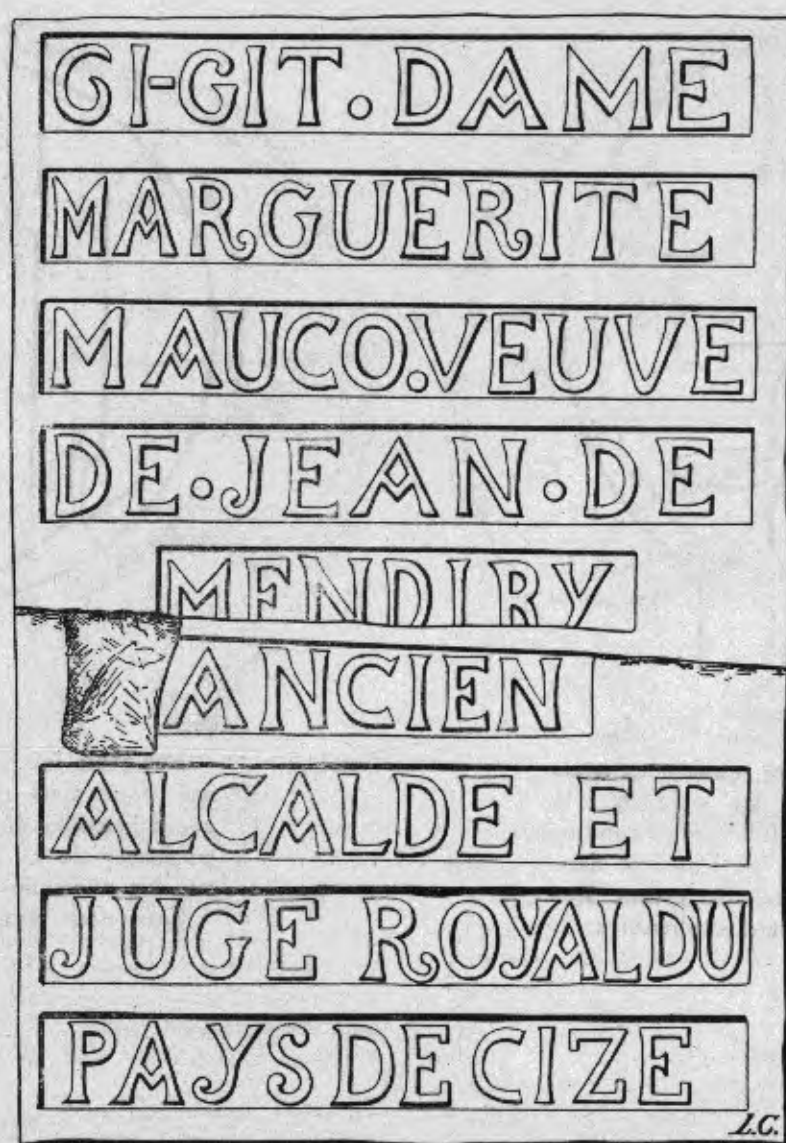 GI-GIT. DAME
MARGUERITE
MAUCO.VEUVE
DE.JEAN.DE
MENDIRY
ANCIEN
ALCALDE ET
JUGE ROYALDU
PAYSDECIZE
L.C.